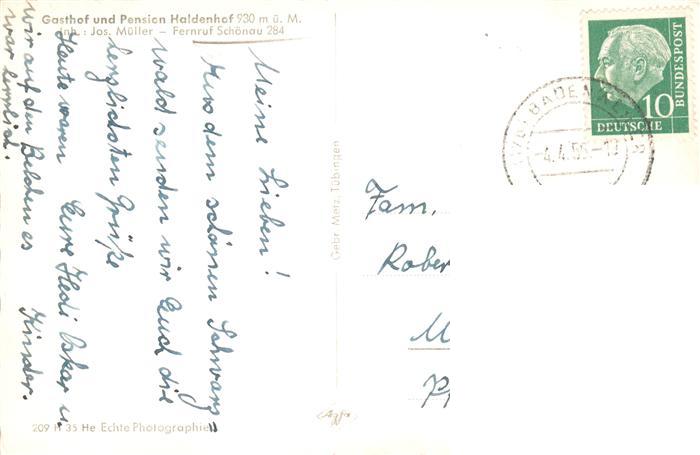 Gasthof und Pension Haldenhof 930 m ü. M.
Inh.: Jos. Müller – Fernruf Schönau 284
Meine Lieben!
Aus dem schönen Schwarz=
wald senden wir Euch die
herzlichsten Grüße
Eure Hedi Oskar u.
Kinder.
Heute waren
wir auf den Belchen es
war herrlich.
209 H 35 He Echte Photographie
Gebr. Metz, Tübingen
Agfa
Fam.
Rober
M
Pf
BADENWEILER
-4.4.
10
DEUTSCHE
BUNDESPOST